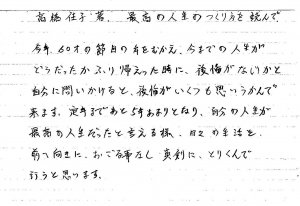 高橋佳子著、最高の人生のつくり方を読んで
今年、60才の節目の年をむかえ、今までの人生が
どうだったかふり帰えった時に、後悔がないかと
自分に問いかけると、後悔がいくつも思いうかんで
来ます。定年まであと5年あまりとなり、自分の人生が
最高の人生だったと言える様、日々の生活を、
前へ向きに、おごる事なし真剣に、とりくんで
行うと思います。